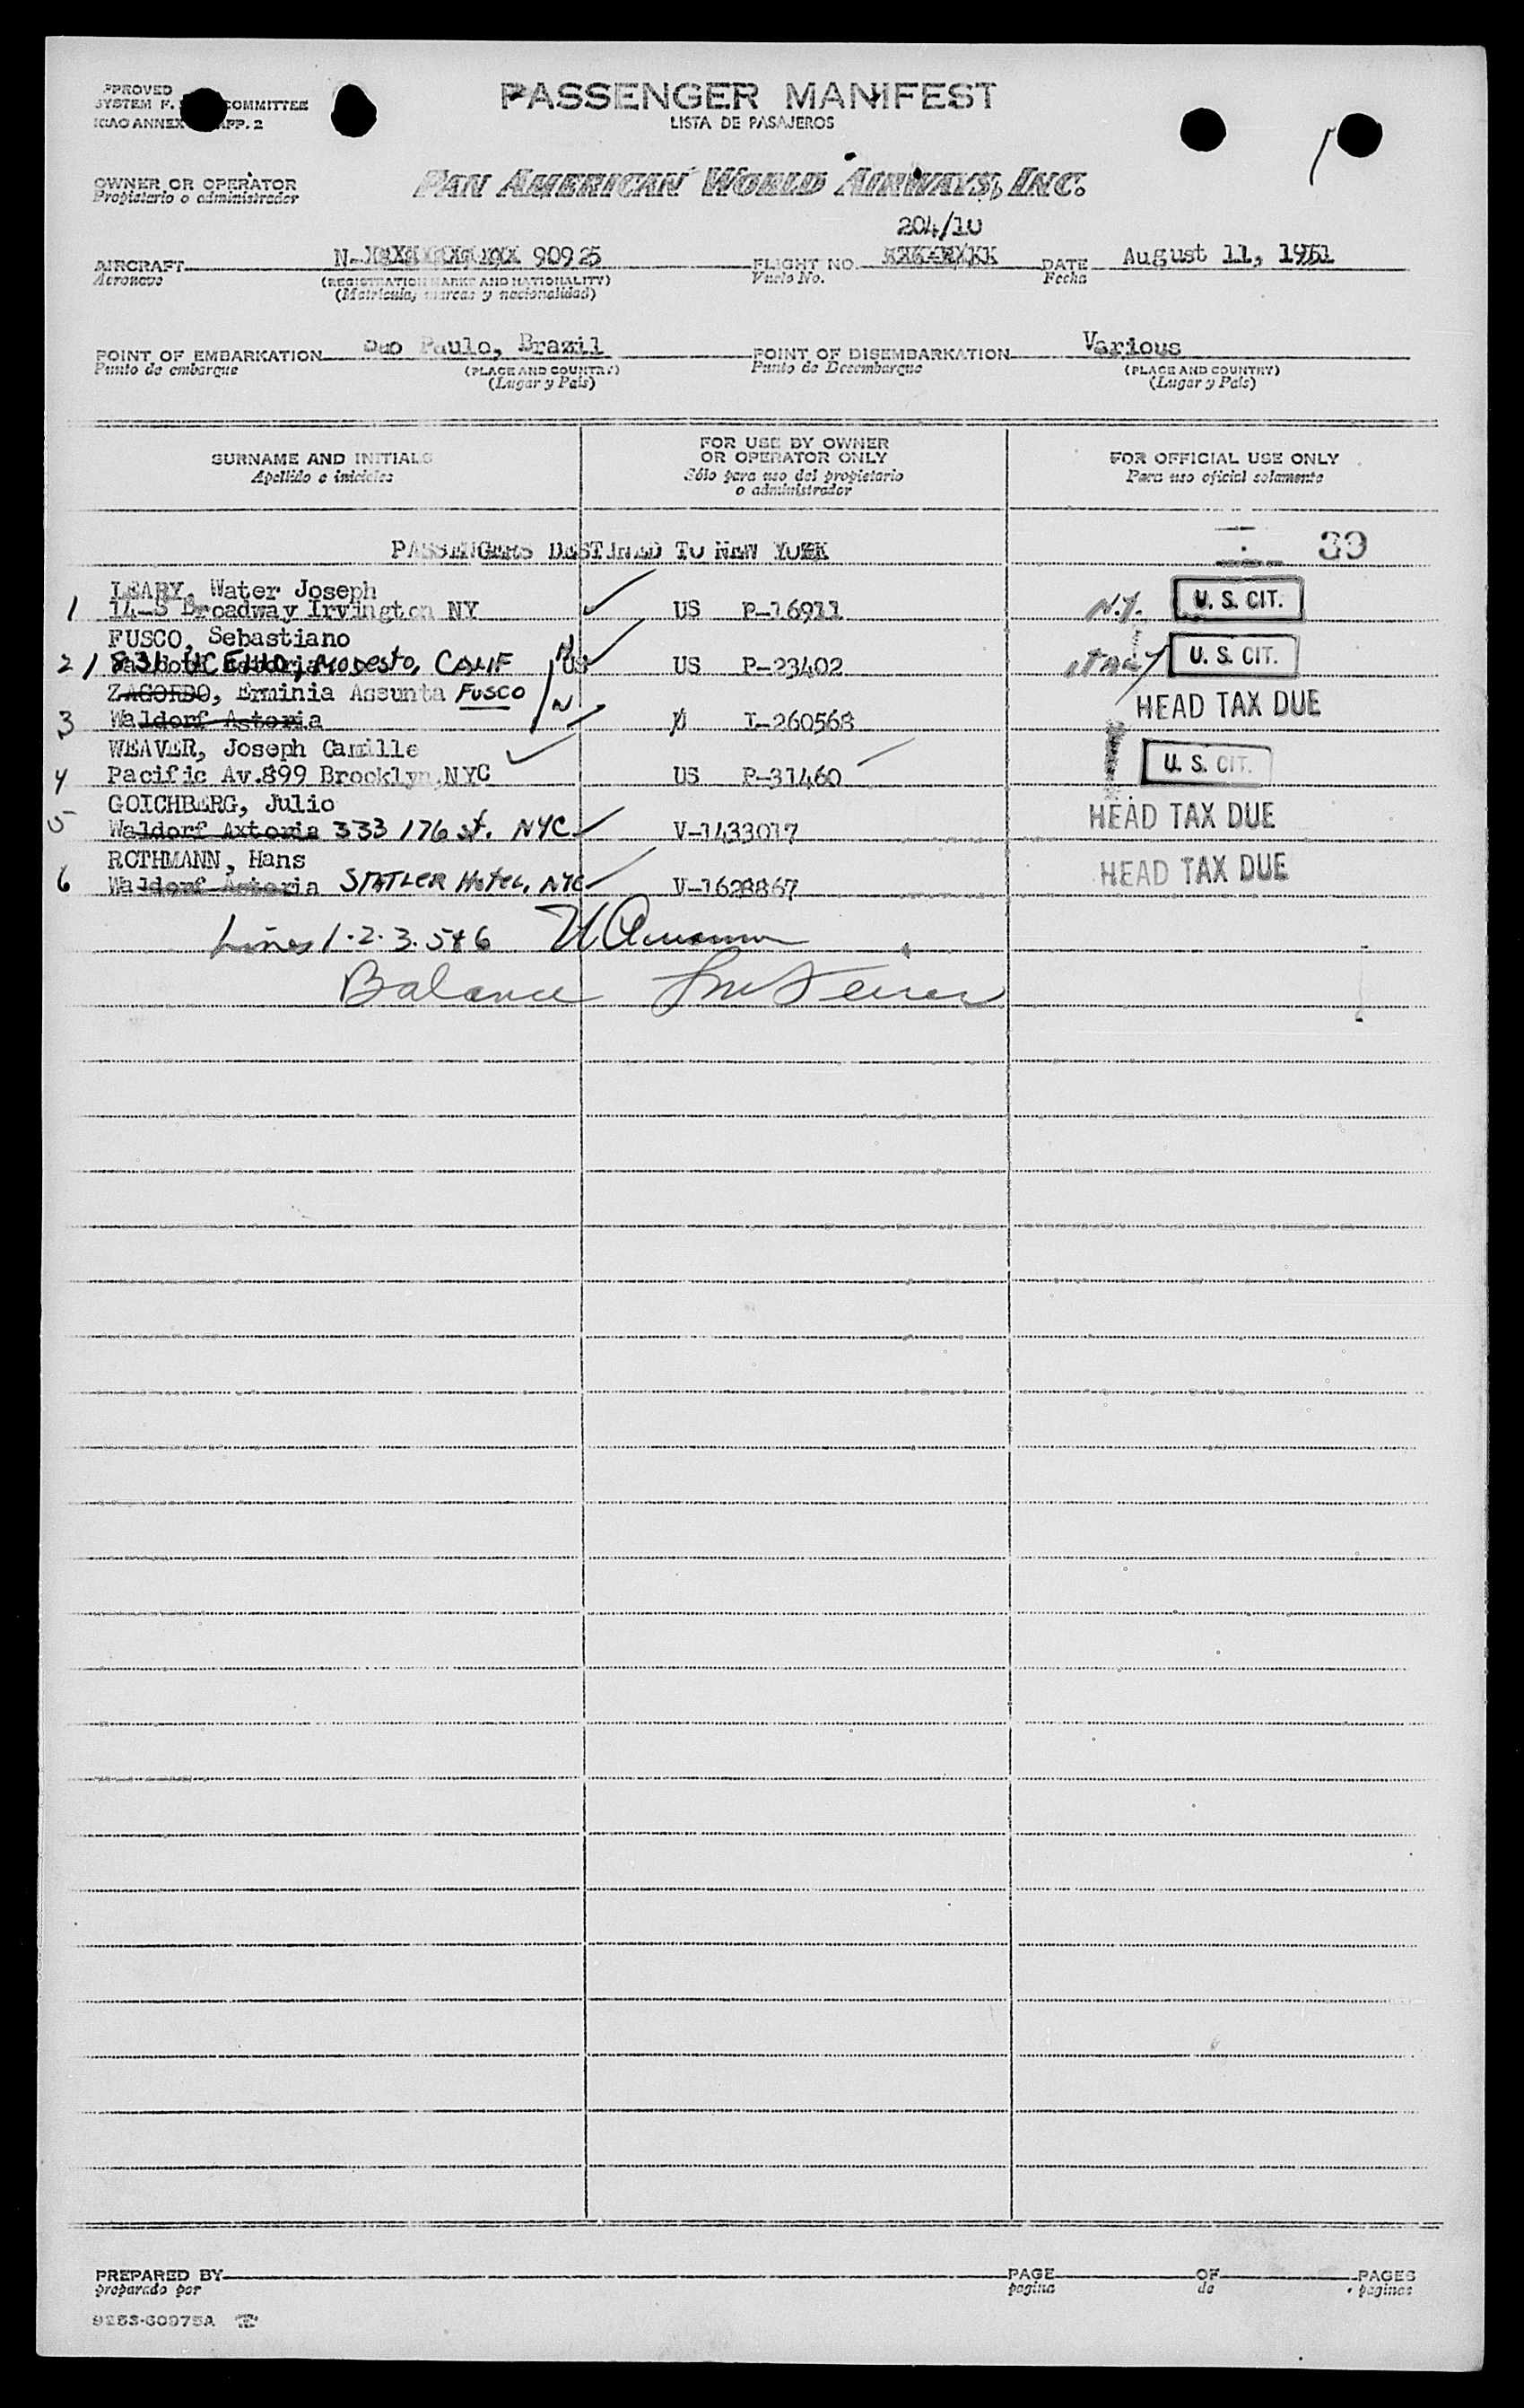 PPROVED
SYSTEM F. COMMITTEE
ICAO ANNEX APP. 2
PASSENGER MANIFEST
LISTA DE PASAJEROS
OWNER OR OPERATOR
Propietario o administrador
PAN AMERICAN WORLD AIRWAYS, INC.
204/10
AIRCRAFT N- 90925 FLIGHT NO. DATE August 11, 1951
Aeronave (REGISTRATION MARKS AND NATIONALITY) Vuelo No. Fecha
(Matricula, marcas y nacionalidad)
POINT OF EMBARKATION Sao Paulo, Brazil POINT OF DISEMBARKATION Various
Punto de embarque (PLACE AND COUNTRY) Punto de Desembarque (PLACE AND COUNTRY)
(Lugar y Pais) (Lugar y Pais)
SURNAME AND INITIALS FOR USE BY OWNER OR OPERATOR ONLY FOR OFFICIAL USE ONLY
Apellido e iniciales Sólo para uso del propietario o administrador Para uso oficial solamente
PASSENGERS DESTINED TO NEW YORK 39
LEARY, Water Joseph
1 14-S Broadway Irvington NY US P-16911 N.Y. U. S. CIT.
FUSCO, Sebastiano
2 831 Modesto, CALIF US US P-23402 Italy U. S. CIT.
ZAGORDO, Erminia Assunta Fusco
3 Waldorf Astoria I-260568 HEAD TAX DUE
WEAVER, Joseph Camille
4 Pacific Av.899 Brooklyn,NYC US P-31460 U. S. CIT.
GOICHBERG, Julio
5 Waldorf Axtoria 333 176 st. NYC V-1433017 HEAD TAX DUE
ROTHMANN, Hans
6 Waldorf Astoria STATLER Hotel, NYC V-1628867 HEAD TAX DUE
Lines 1.2.3.5+6
Balance
PREPARED BY PAGE OF PAGES
preparado por pagina de paginas
9253-60975A